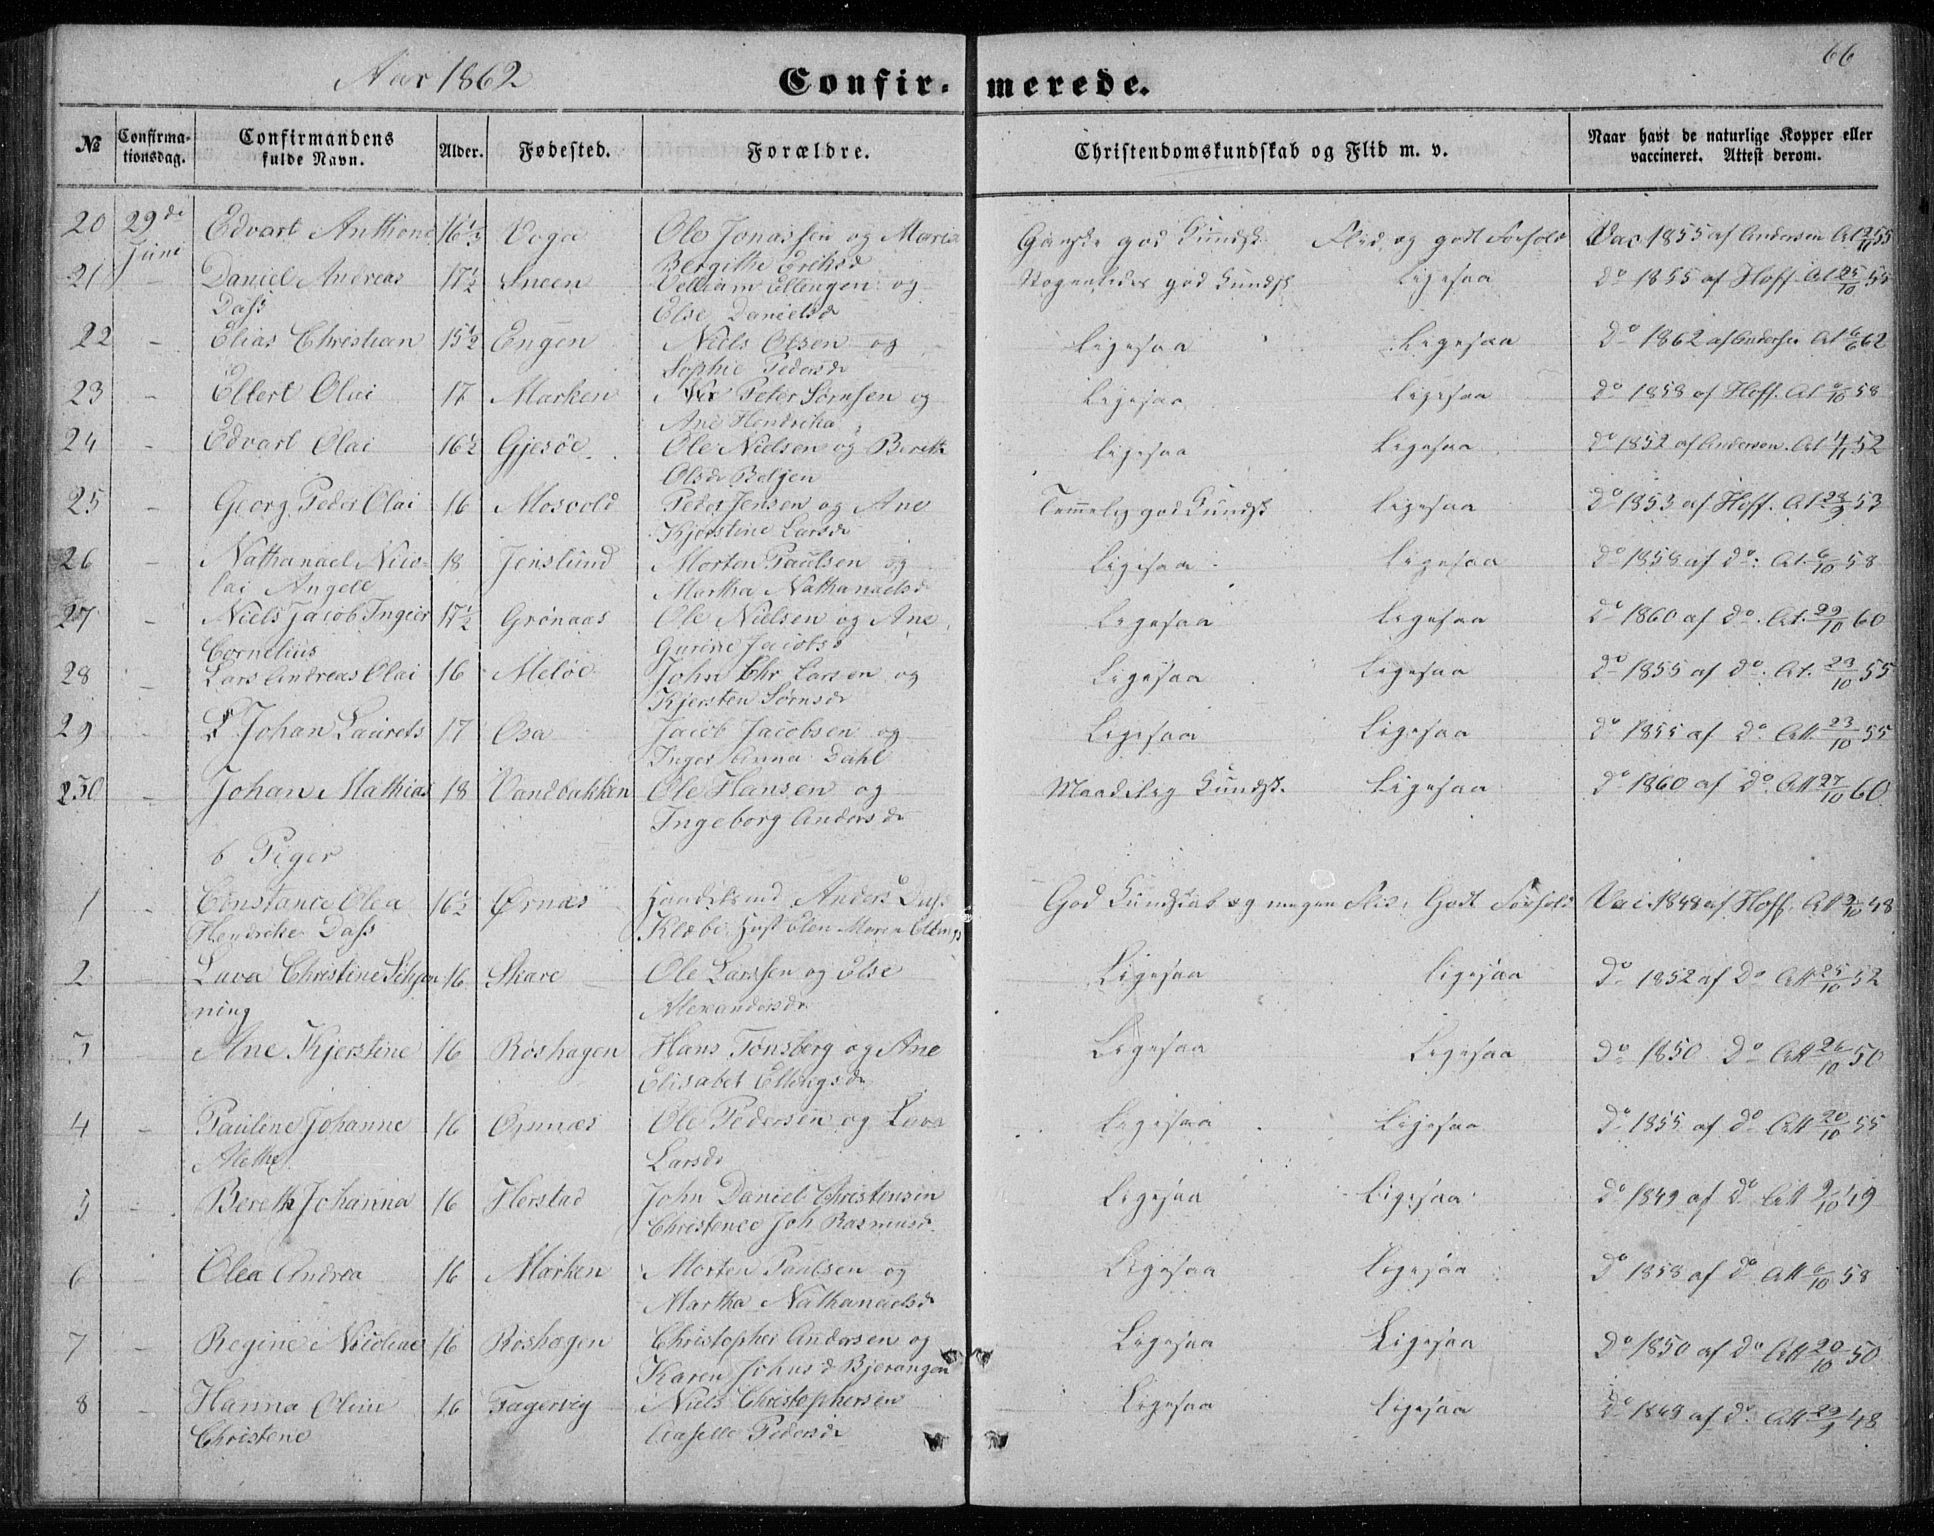 66
Aar 1862 Confir- merede.
№ Confirma-tionsdag. Confirmandens fulde Navn. Alder. Fødested. Forældre. Christendomskundskab og Flid m. v. Naar havt de naturlige Kopper eller vaccineret. Attest derom.
20 29de Juni Edvart Anthon 16½ Ole Jonassen og Maria Ganske god Kundsk. Flid og godt Forhold Vac 1855 af Andersen
Bergithe Eriksd
21 - Daniel Andreas 17½ Sneen Ellingen og god Kundsk Ligesaa do 1855 af Hoff. At 25/10 55
Dass Else Danielsd
22 - Elias Christian 15½ Engen Niels Olsen og Ligesaa Ligesaa do 1862 af Andersen At 6/6 62
Sophie Pedersd
23 - Ellert Olai 17 Marken Peter Sørnsen og Ligesaa Ligesaa do 1858 af Hoff. At 6/10 58
Ane Hendrika
24 - Edvart Olai 16½ Gjesøe Ole Nielsen og Bereth Ligesaa Ligesaa do 1852 af Andersen. At 52
Olsdr
25 - Georg Peder Olai 16 Mosvold Peder Jensen og Ane Temmelig god Kundsk Ligesaa do 1853 af Hoff. At 28/9 53
Kjerstine Larsdr
26 - Nathanael Nico- 18 Jenslund Morten Paulsen og Ligesaa Ligesaa do 1858 af do. At. 6/10 58
lai Angell Martha Nathanaelsd
27 - Niels Jacob Ingier 17½ Grønaas Ole Nielsen og Ane Ligesaa Ligesaa do 1860 af do. At. 29/10 60
Cornelius Gurine Jacobsd
28 - Lars Andreas Olai 16 Meløe John Chr Larsen og Ligesaa Ligesaa do 1855 af do. At. 23/10 55
Kjersten Sørnsdr
29 - Johan Laurets 17 Osa Jacob Jacobsen og Ligesaa Ligesaa do 1855 af do Att 23/10 55
Inger Anna Dahl
30 - Johan Mathias 18 Vandbakken Ole Hansen og Maadelig Kundsk. Ligesaa do 1860 af do. Att 27/10 60
Ingeborg Andersdr
b Piger
1 - Constance Olea 16½ Ørnæs Handelsmd Anders Dass God Kundskab og megen Flid, Godt Forhold Vac. 1848 af Hoff. At 9/10 48
Hendrike Dass Klæbo Hust Elen Maren
2 - Lava Christine 16 Skare Ole Larssen og Else Ligesaa Ligesaa do 1852 af do Att 25/10 52
ning Alexandersdr
3 - Ane Kjerstine 16 Røshagen Hans Tønsberg og Ane Ligesaa Ligesaa do 1850 do Att 26/10 50
Elisabet Ellingsdr
4 - Pauline Johanne 16 Ørnnæs Ole Pedersen og Lava Ligesaa Ligesaa do 1855 af do Att 20/10 55
Alethe Larsd
5 - Bereth Johanna 16 Herstad John Daniel Christensen Ligesaa Ligesaa do 1849 af do Att 9/10 49
Christence Joh Rasmusd
6 - Olea Andrea 16 Marken Morten Paulsen og Ligesaa Ligesaa do 1858 af do Att 6/10 58
Martha Nathanaelsd
7 - Regine Nicoline 16 Røshagen Christopher Andersen og Ligesaa Ligesaa do 1850 af do Att 20/10 50
Karen Johnsd Bjerangen
8 - Hanna Oline 16 Fagervig Niels Christophersen Ligesaa Ligesaa do 1848 af do Att 29/9 48
Christene Pedersdr